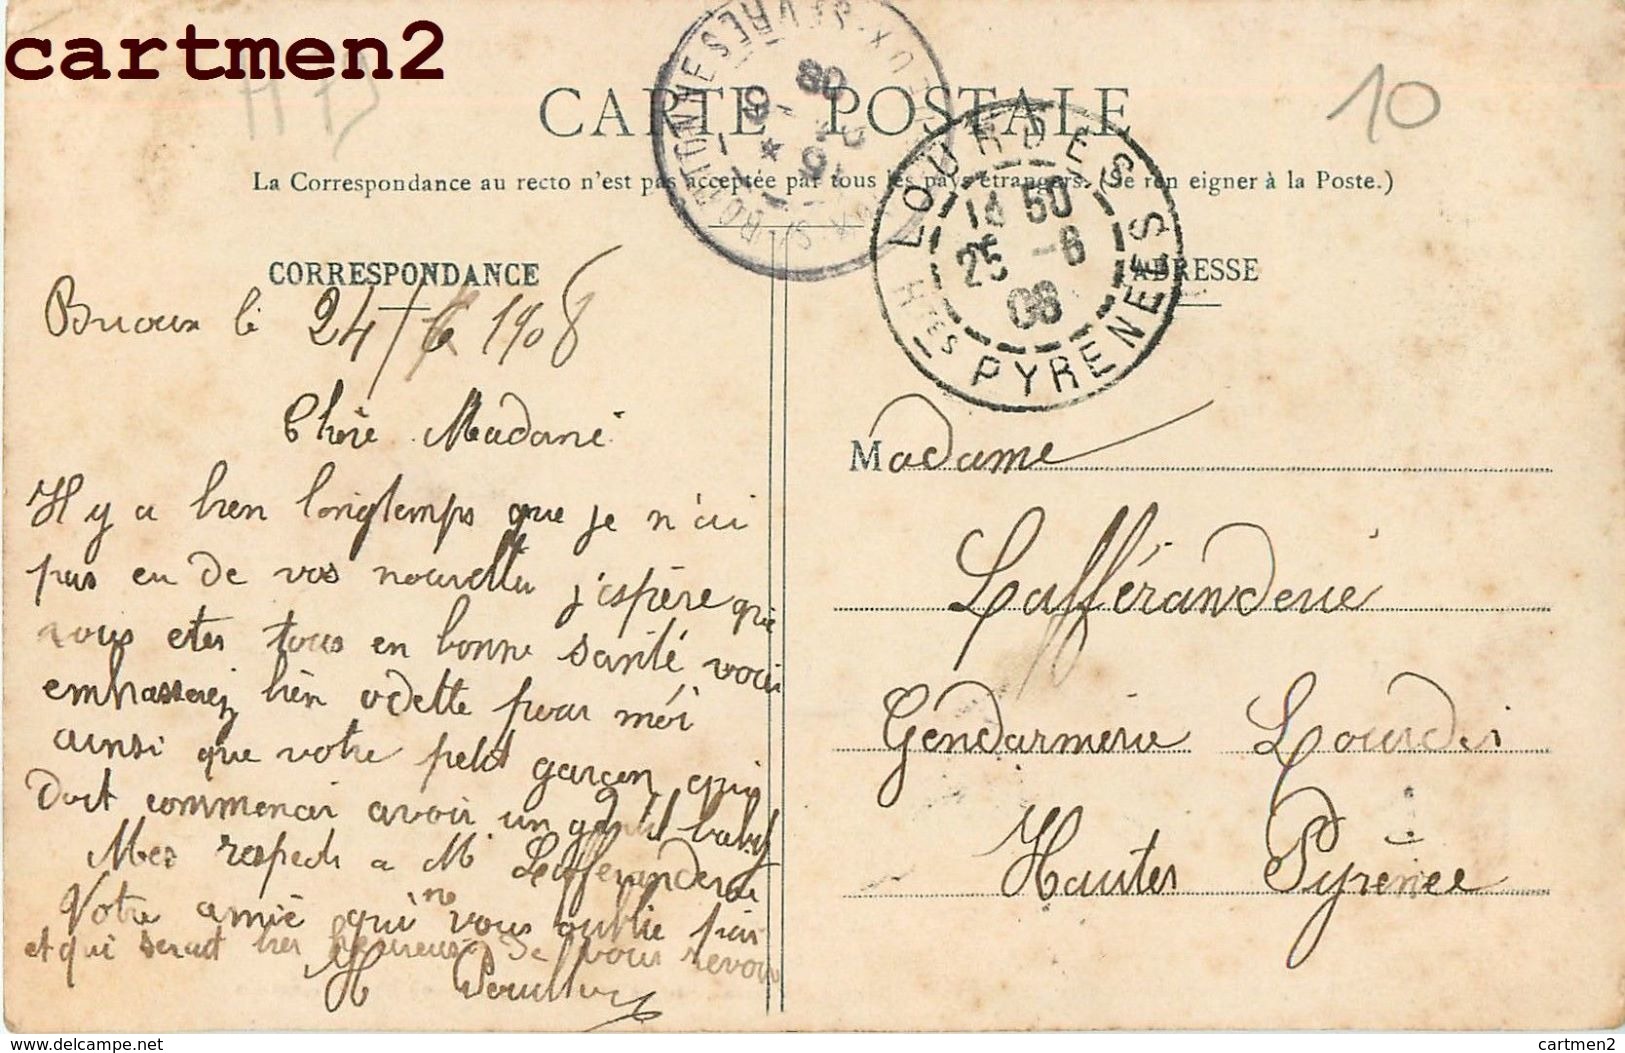 cartmen2
10
CARTE POSTALE
La Correspondance au recto n'est pas acceptée par tous les pays étrangers. (Se ren eigner à la Poste.)
LOURDES
14 50
25 -6
08
Htes PYRENEES
CORRESPONDANCE
Brioux le 24/6 1908
Chère Madame
Il y a bien longtemps que je n'ai
pas eu de vos nouvelles j'espère que
vous etes tous en bonne santé, vous
embrasserez bien odette pour moi
ainsi que votre petit garçon qui
doit commencer avoir un gentil baby
Mes respects a Mr Lafferanderie
Votre amie qui ne vous oublie pas
et qui serait tres heureuse de vous revoir
H
ADRESSE
Madame
Lafféranderie
Gendarmerie Lourdes
Hautes Pyrénée
delcampe.net
cartmen2